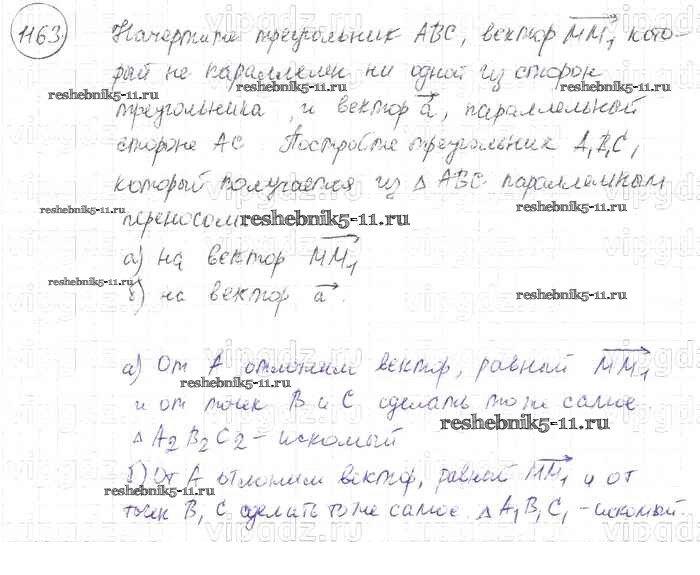 1163
Начертите треугольник ABC, вектор MM₁, кото-
рый не параллелен ни одной из сторон
reshebnik5-11.ru reshebnik5-11.ru
треугольника, и вектор a, параллельный
стороне AC Постройте треугольник A₁B₁C₁
который получается из Δ ABC параллельным
reshebnik5-11.ru reshebnik5-11.ru
переносом
reshebnik5-11.ru
а) на вектор MM₁
reshebnik5-11.ru
б) на вектор a.
reshebnik5-11.ru
а) От A отложим вектор, равный MM₁
reshebnik5-11.ru
и от точек B и C сделать то же самое
reshebnik5-11.ru
Δ A₂B₂C₂ - искомый
б) От A отложим вектор, равный MM₁ и от
reshebnik5-11.ru
точек B, C сделать то же самое. Δ A₁B₁C₁ - искомый.
reshebnik5-11.ru